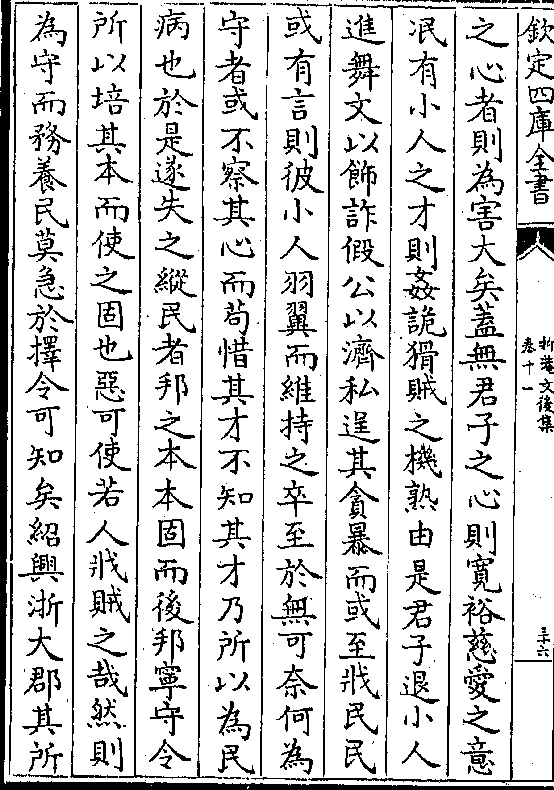 欽定四庫全書
柏菴文後集
卷十一
三十六
之心者則為害大矣蓋無君子之心則寛裕慈愛之意
泯有小人之才則姦詭猾賊之機熟由是君子退小人
進舞文以飾詐假公以濟私逞其貪暴而或至戕民民
或有言則彼小人羽翼而維持之卒至於無可奈何為
守者或不察其心而茍惜其才不知其才乃所以為民
病也於是遂失之縱民者邦之本本固而後邦寧守令
所以培其本而使之固也惡可使若人戕賊之哉然則
為守而務養民莫急於擇令可知矣紹興浙大郡其所